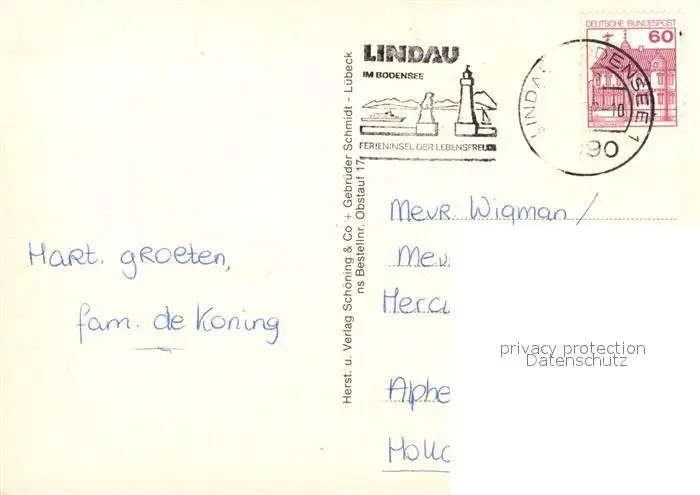 Hart. groeten,
fam. de Koning
Herst. u. Verlag Schöning & Co + Gebrüder Schmidt - Lübeck
ns Bestellnr. Obstauf 17
LINDAU
IM BODENSEE
FERIENINSEL DER LEBENSFREUDE
DEUTSCHE BUNDESPOST
60
Mevr. Wigman /
privacy protection
Datenschutz